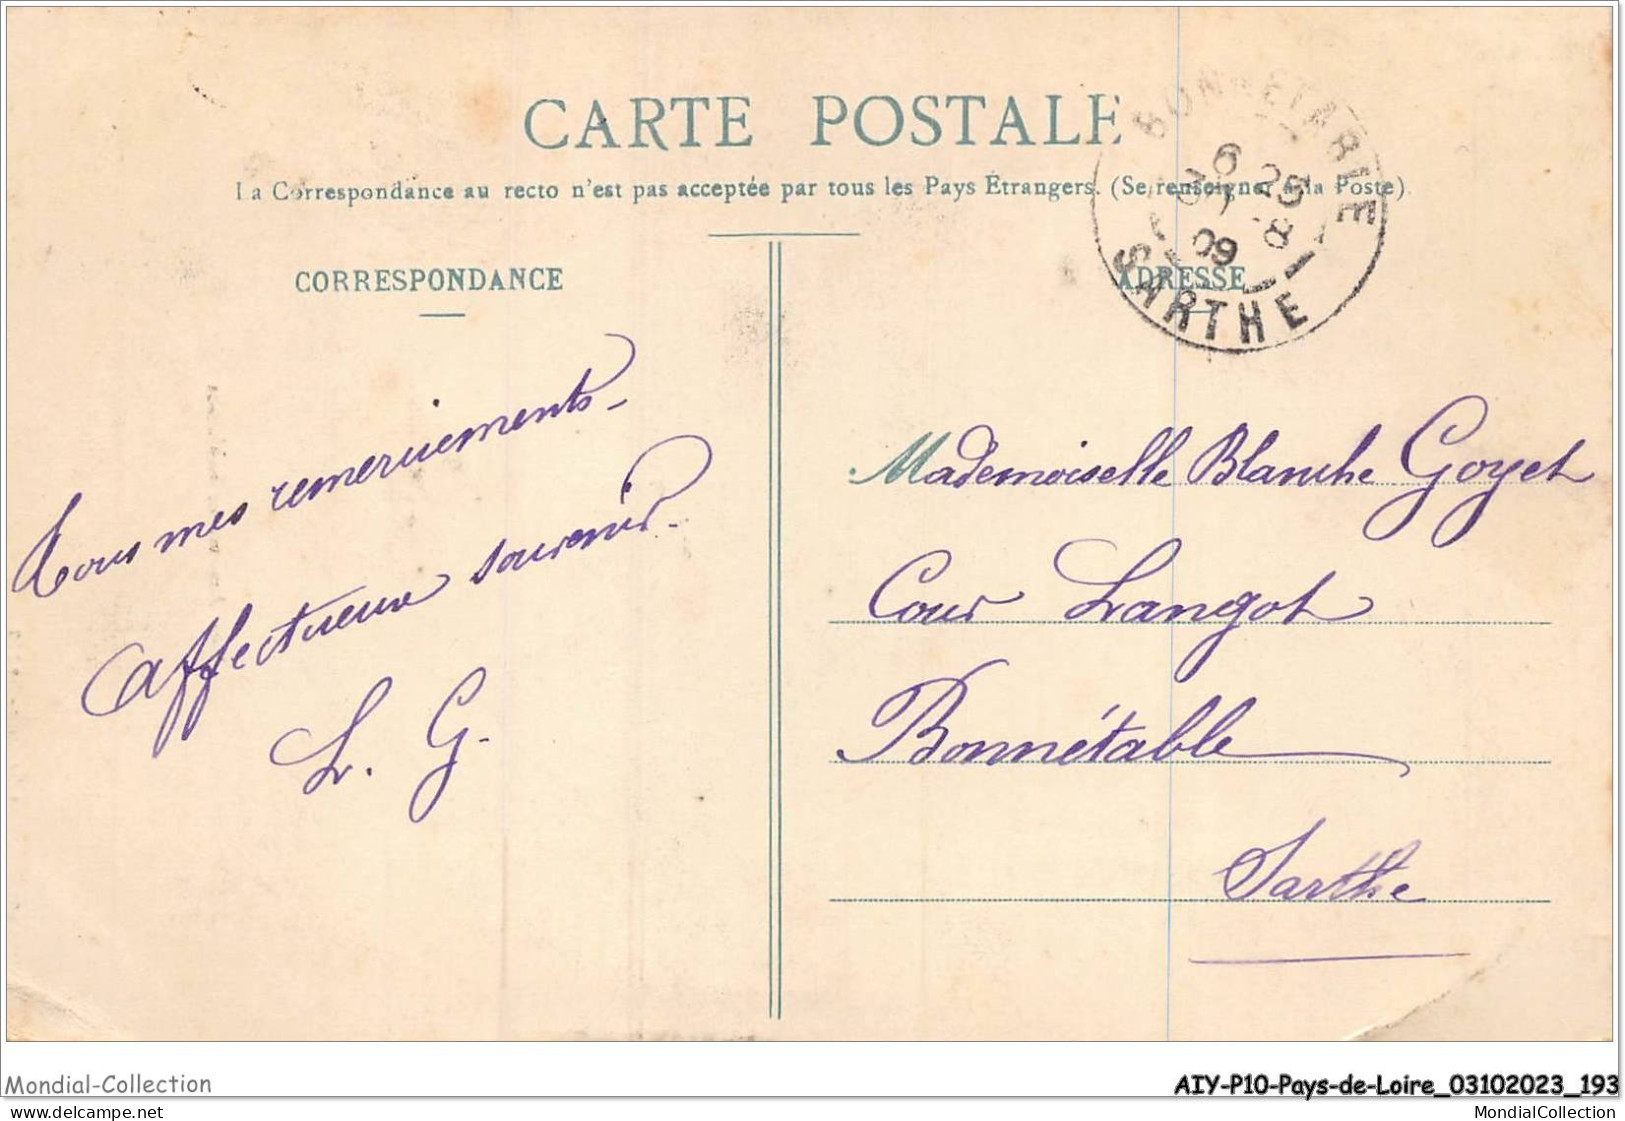 CARTE POSTALE
La Correspondance au recto n'est pas acceptée par tous les Pays Étrangers. (Se renseigner à la Poste)
BONNETABLE
6 25
8
09
SARTHE
CORRESPONDANCE
ADRESSE
Tous mes remerciements
Affectueux souvenir.
L. G.
Mademoiselle Blanche Goyet
Cour Langot
Bonnétable
Sarthe
Mondial-Collection
www.delcampe.net
AIY-P10-Pays-de-Loire_03102023_193
MondialCollection